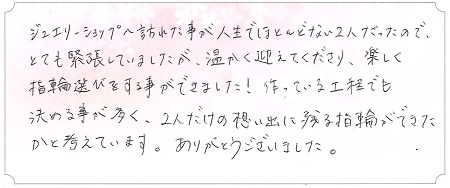 ジュエリーショップへ訪れた事が人生でほとんどない2人だったので、
とても緊張していましたが、温かく迎えてくださり、楽しく
指輪選びをする事ができました！作っている工程でも
決める事が多く、2人だけの想い出に残る指輪ができた
かと考えています。ありがとうございました。